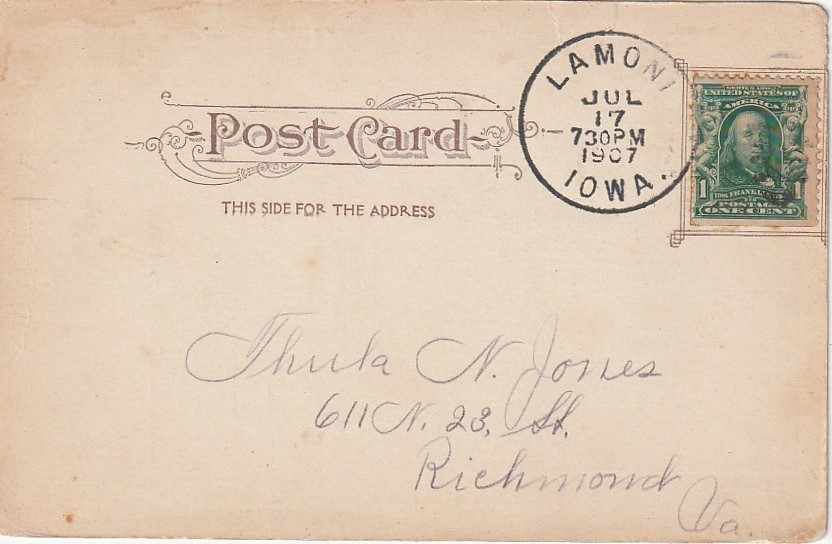 Post Card
THIS SIDE FOR THE ADDRESS
LAMONI
JUL
17
730PM
1907
IOWA.
UNITED STATES OF
AMERICA
1 1
FRANKLIN
POSTAGE
ONE CENT
Thula N. Jones
611 N. 23, St.
Richmond
Va.